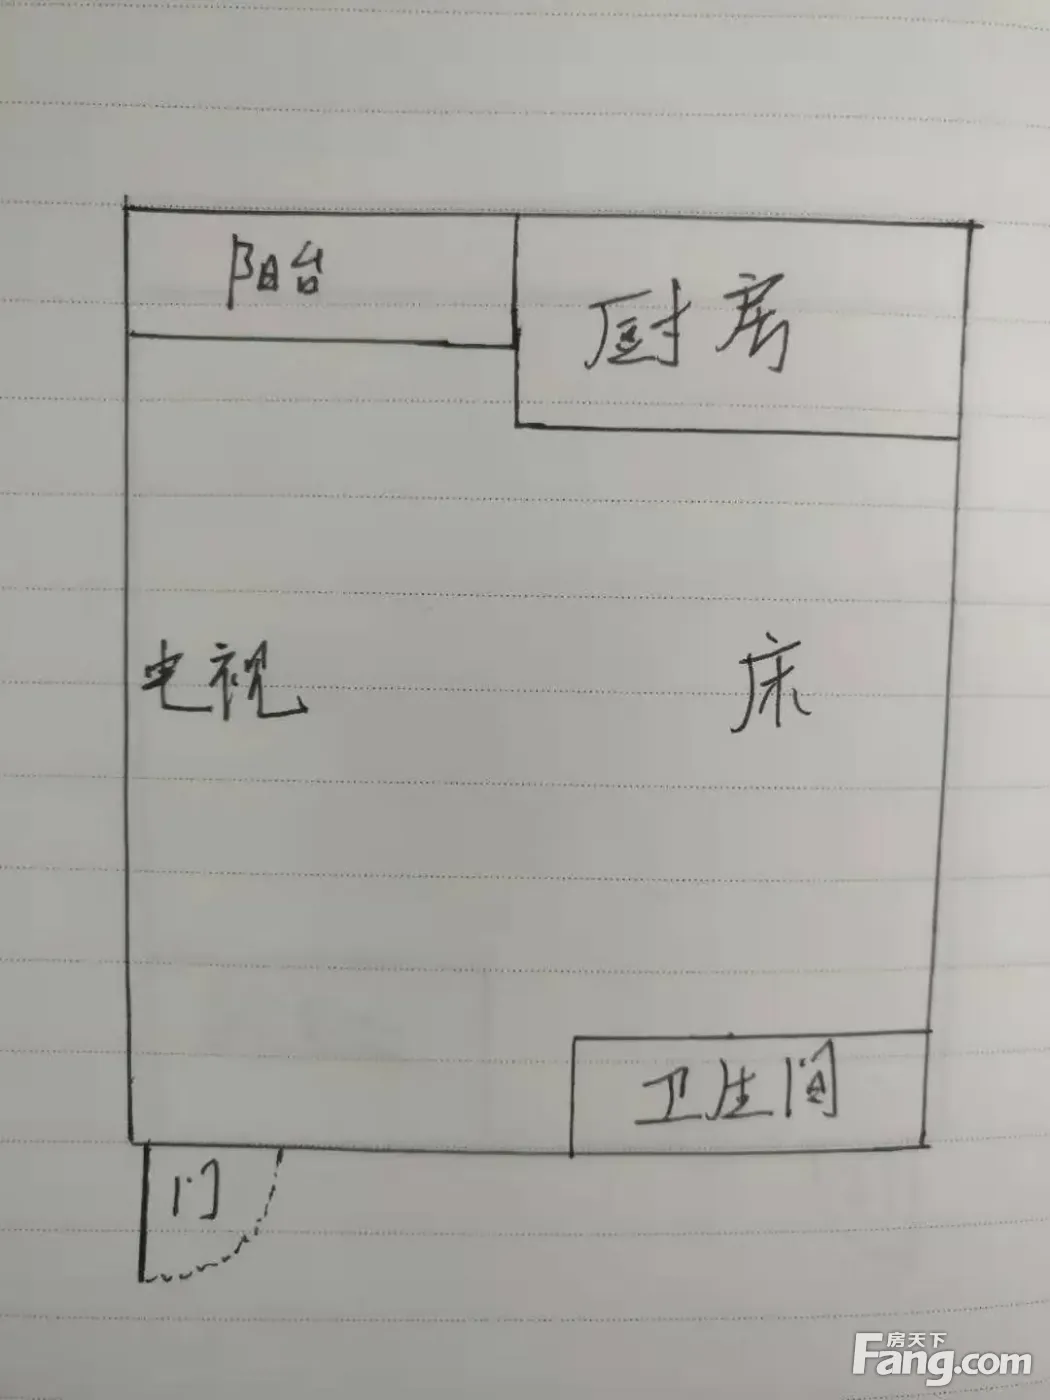 阳台
厨房
电视
床
卫生间
门
房天下
Fang.com